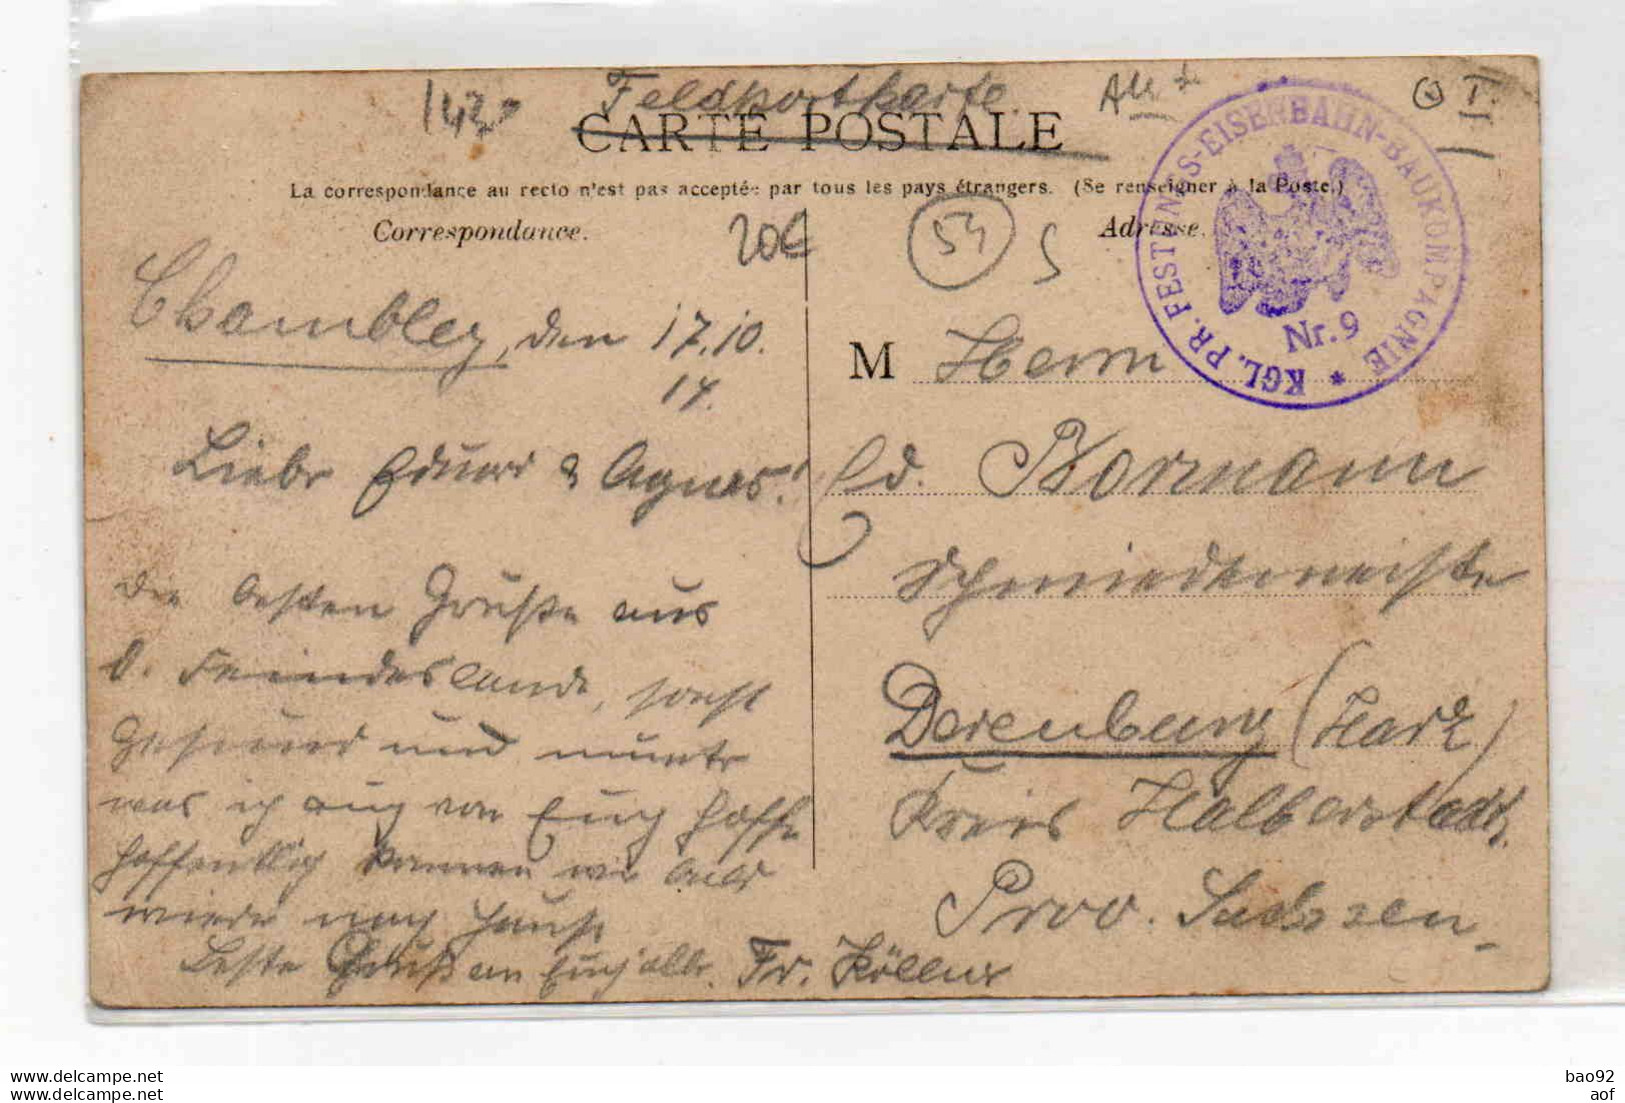 1430
Feldpostkarte
CARTE POSTALE
La correspondance au recto n'est pas acceptée par tous les pays étrangers. (Se renseigner à la Poste.)
Correspondance.
20€
54
S
Adresse.
KGL. PR. FESTUNGS-EISENBAHN-BAUKOMPAGNIE *
Nr. 9
I.
Chambley, den 17.10.
14.
Liebe Eduard & Agnes!
Die besten Grüße aus
d. Feindeslande, sonst
gesund und munter
was ich auch von Euch hoffe
hoffentlich kommen wir bald
wieder nach Hause
Beste Grüße an Euch alle. Fr. Köllner
M Herrn
Ed. Bormann
Schmiedemeister
Derenburg (Harz)
Kreis Halberstadt
Prov. Sachsen
delcampe.net
delcampe.net
bao92
aof